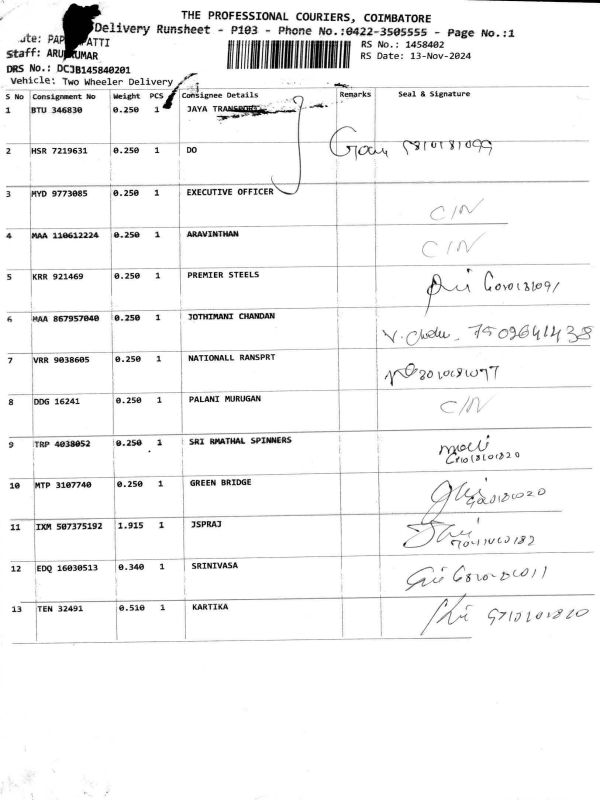 THE PROFESSIONAL COURIERS, COIMBATORE
Delivery Runsheet - P103 - Phone No.:0422-3505555 - Page No.:1
RS No.: 1458402
RS Date: 13-Nov-2024
DRS No.: DCJB145840201
Vehicle: Two Wheeler Delivery
S No Consignment No Weight PCS Consignee Details Remarks Seal & Signature
1 BTU 346830 0.250 1 JAYA TRANSPORT
2 HSR 7219631 0.250 1 DO
3 MYD 9773085 0.250 1 EXECUTIVE OFFICER C/N
4 MAA 110612224 0.250 1 ARAVINTHAN C/N
5 KRR 921469 0.250 1 PREMIER STEELS
6 MAA 867957040 0.250 1 JOTHIMANI CHANDAN 7502641438
7 VRR 9038605 0.250 1 NATIONALL RANSPRT
8 DDG 16241 0.250 1 PALANI MURUGAN C/N
9 TRP 4038052 0.250 1 SRI RMATHAL SPINNERS
10 MTP 3107740 0.250 1 GREEN BRIDGE
11 IXM 507375192 1.915 1 JSPRAJ
12 EDQ 16030513 0.340 1 SRINIVASA
13 TEN 32491 0.510 1 KARTIKA